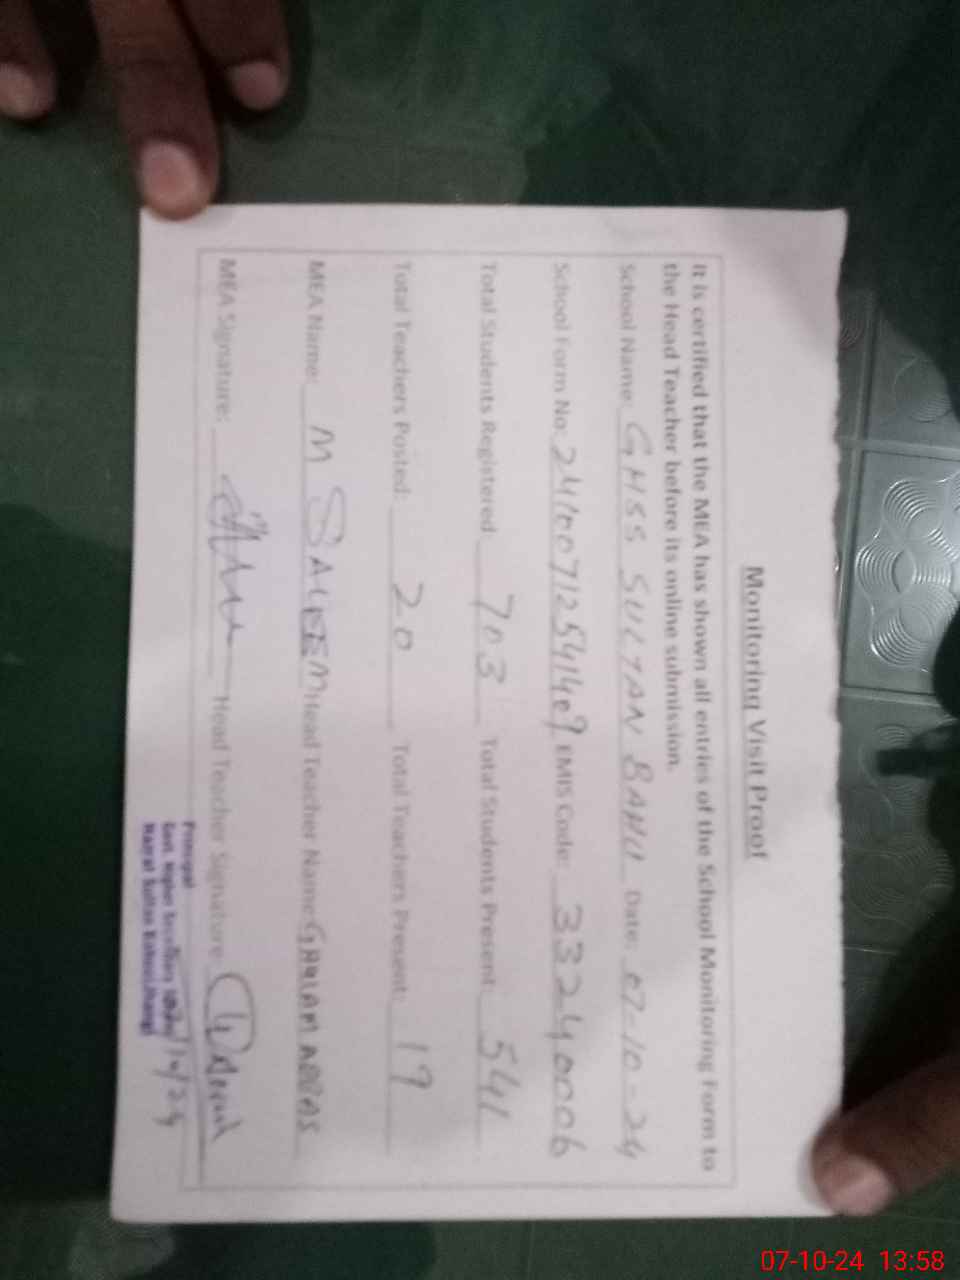 Monitoring Visit Proof
It is certified that the MEA has shown all entries of the School Monitoring Form to
the Head Teacher before its online submission.
School Name GHSS SULTAN BAHU Date: 07-10-24
School Form No: EMIS Code: 33240006
Total Students Registered 703 Total Students Present: 541
Total Teachers Posted: 20 Total Teachers Present: 19
MEA Name: M SALEEM Head Teacher Name: GHULAM ABBAS
MEA Signature: Head Teacher Signature:
Principal
Govt. Higher Secondary
Hazrat Sultan Bahoo
07-10-24 13:58